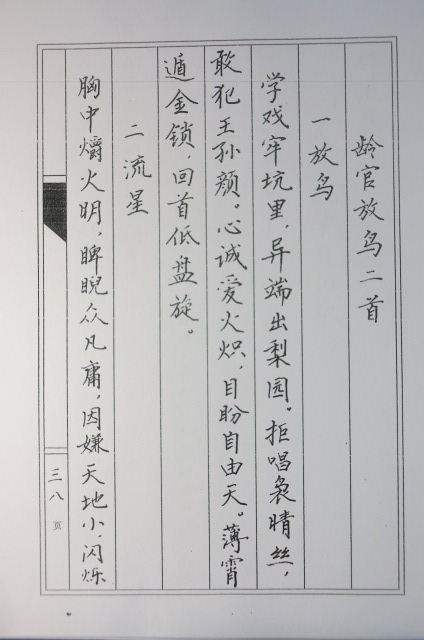 龄官放鸟二首
一放鸟
学戏牢坑里，异端出梨园。拒唱袅晴丝，
敢犯王孙颜。心诚爱火炽，目盼自由天。薄霄
遁金锁，回首低盘旋。
二流星
胸中爝火明，睥睨众凡庸，因嫌天地小，闪烁
三八页